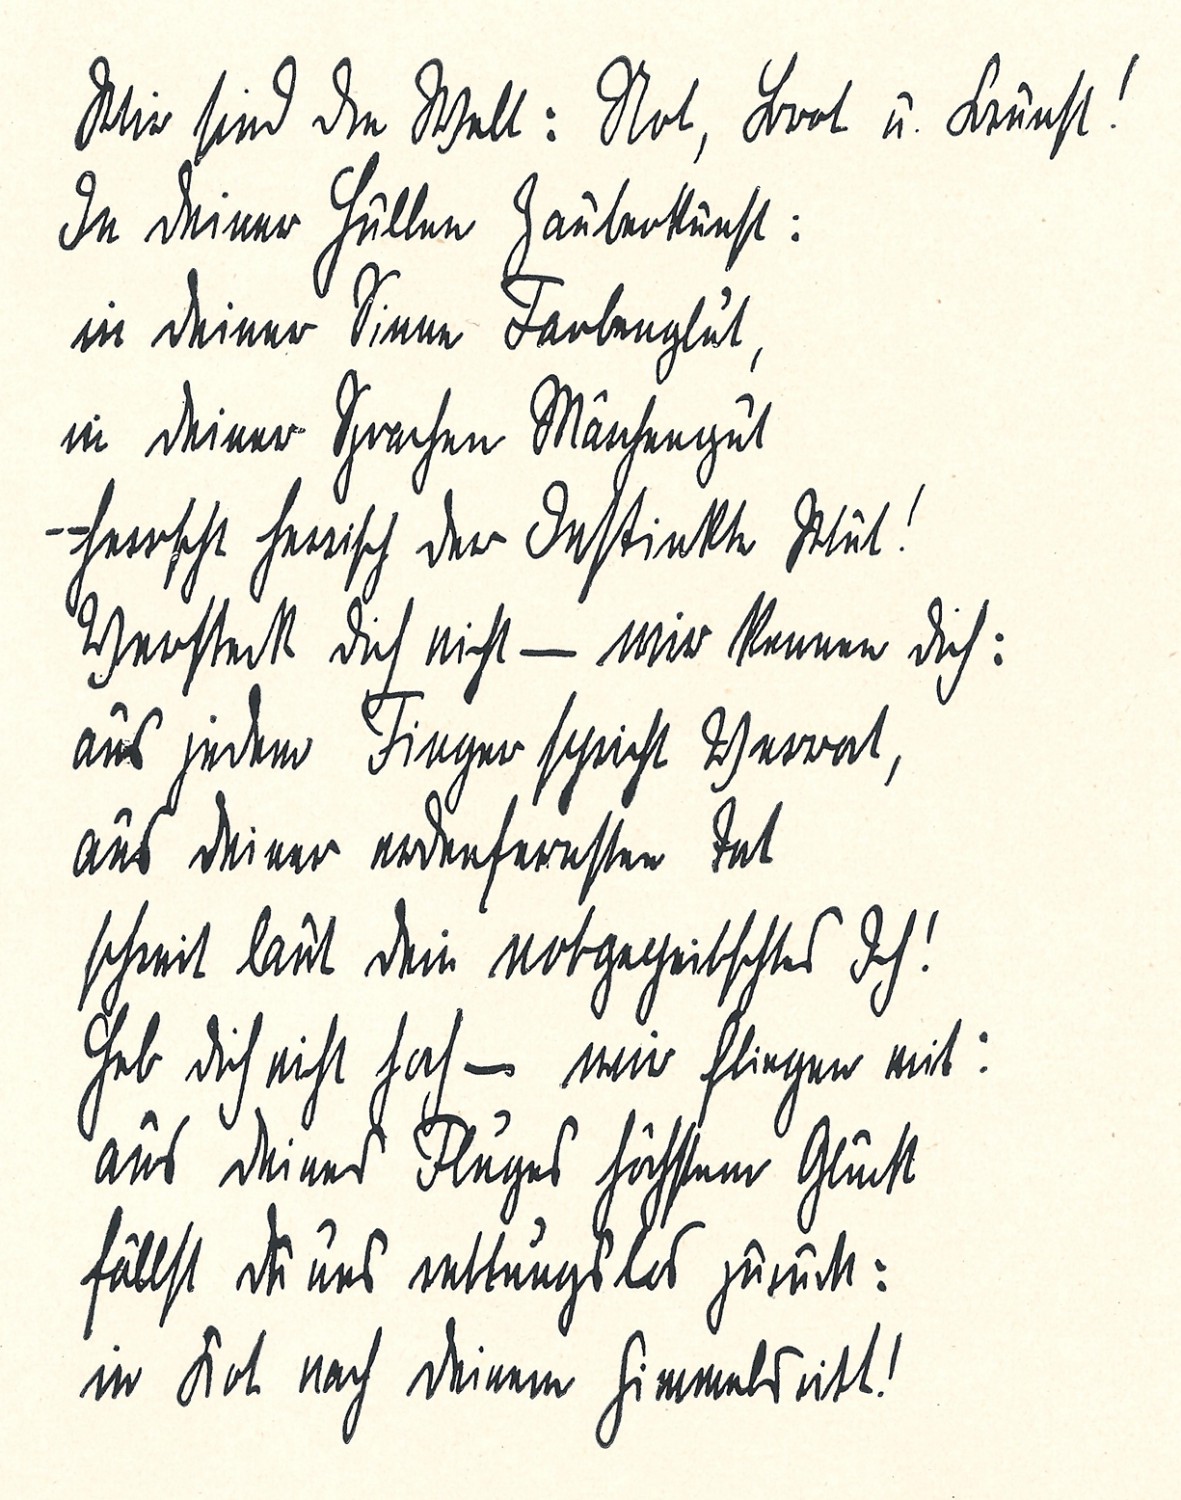 Wir sind die Welt: Not, Brot u. Brunst!
In deiner Hüllen Zauberkunst:
in deiner Sinne Farbenglut,
in deiner Sprachen Märchengut
--herrscht herrisch der Instinkte Wut!
Versteck dich nicht — wir kennen dich:
aus jedem Finger spricht Verrat,
aus deiner erdenfernsten Tat
schreit laut dein notgepeitschtes Ich!
Heb dich nicht hoch — wir fliegen mit:
aus deines Fluges höchstem Glück
fällst du uns rettungslos zurück:
in Kot nach deinem Himmelsritt!